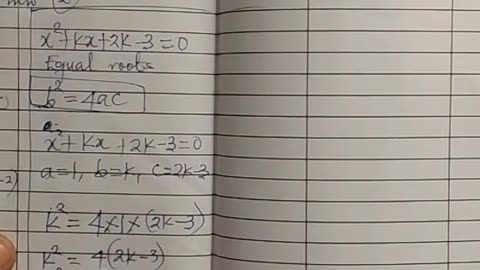 x²+kx+2k-3=0
Equal roots
b²=4ac
x²+kx+2k-3=0
a=1, b=k, c=2k-3
k²=4×1×(2k-3)
k²=4(2k-3)